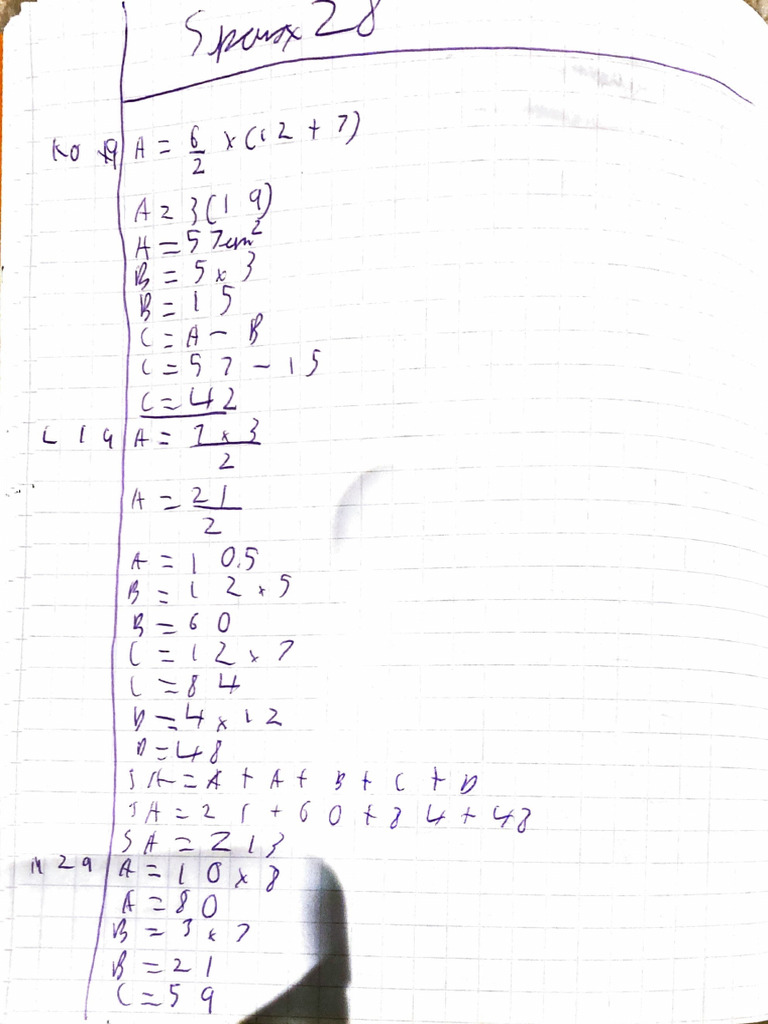 A = 6/2 x (12 + 7)
A = 3(19)
A = 57cm²
B = 5 x 3
B = 15
C = A - B
C = 57 - 15
C = 42
L 19 A = 7 x 3 / 2
A = 21/2
A = 10.5
B = 12 x 5
B = 60
C = 12 x 7
C = 84
D = 4 x 12
D = 48
SA = A + A + B + C + D
SA = 21 + 60 + 84 + 48
SA = 213
M 29 A = 10 x 8
A = 80
B = 3 x 7
B = 21
C = 59